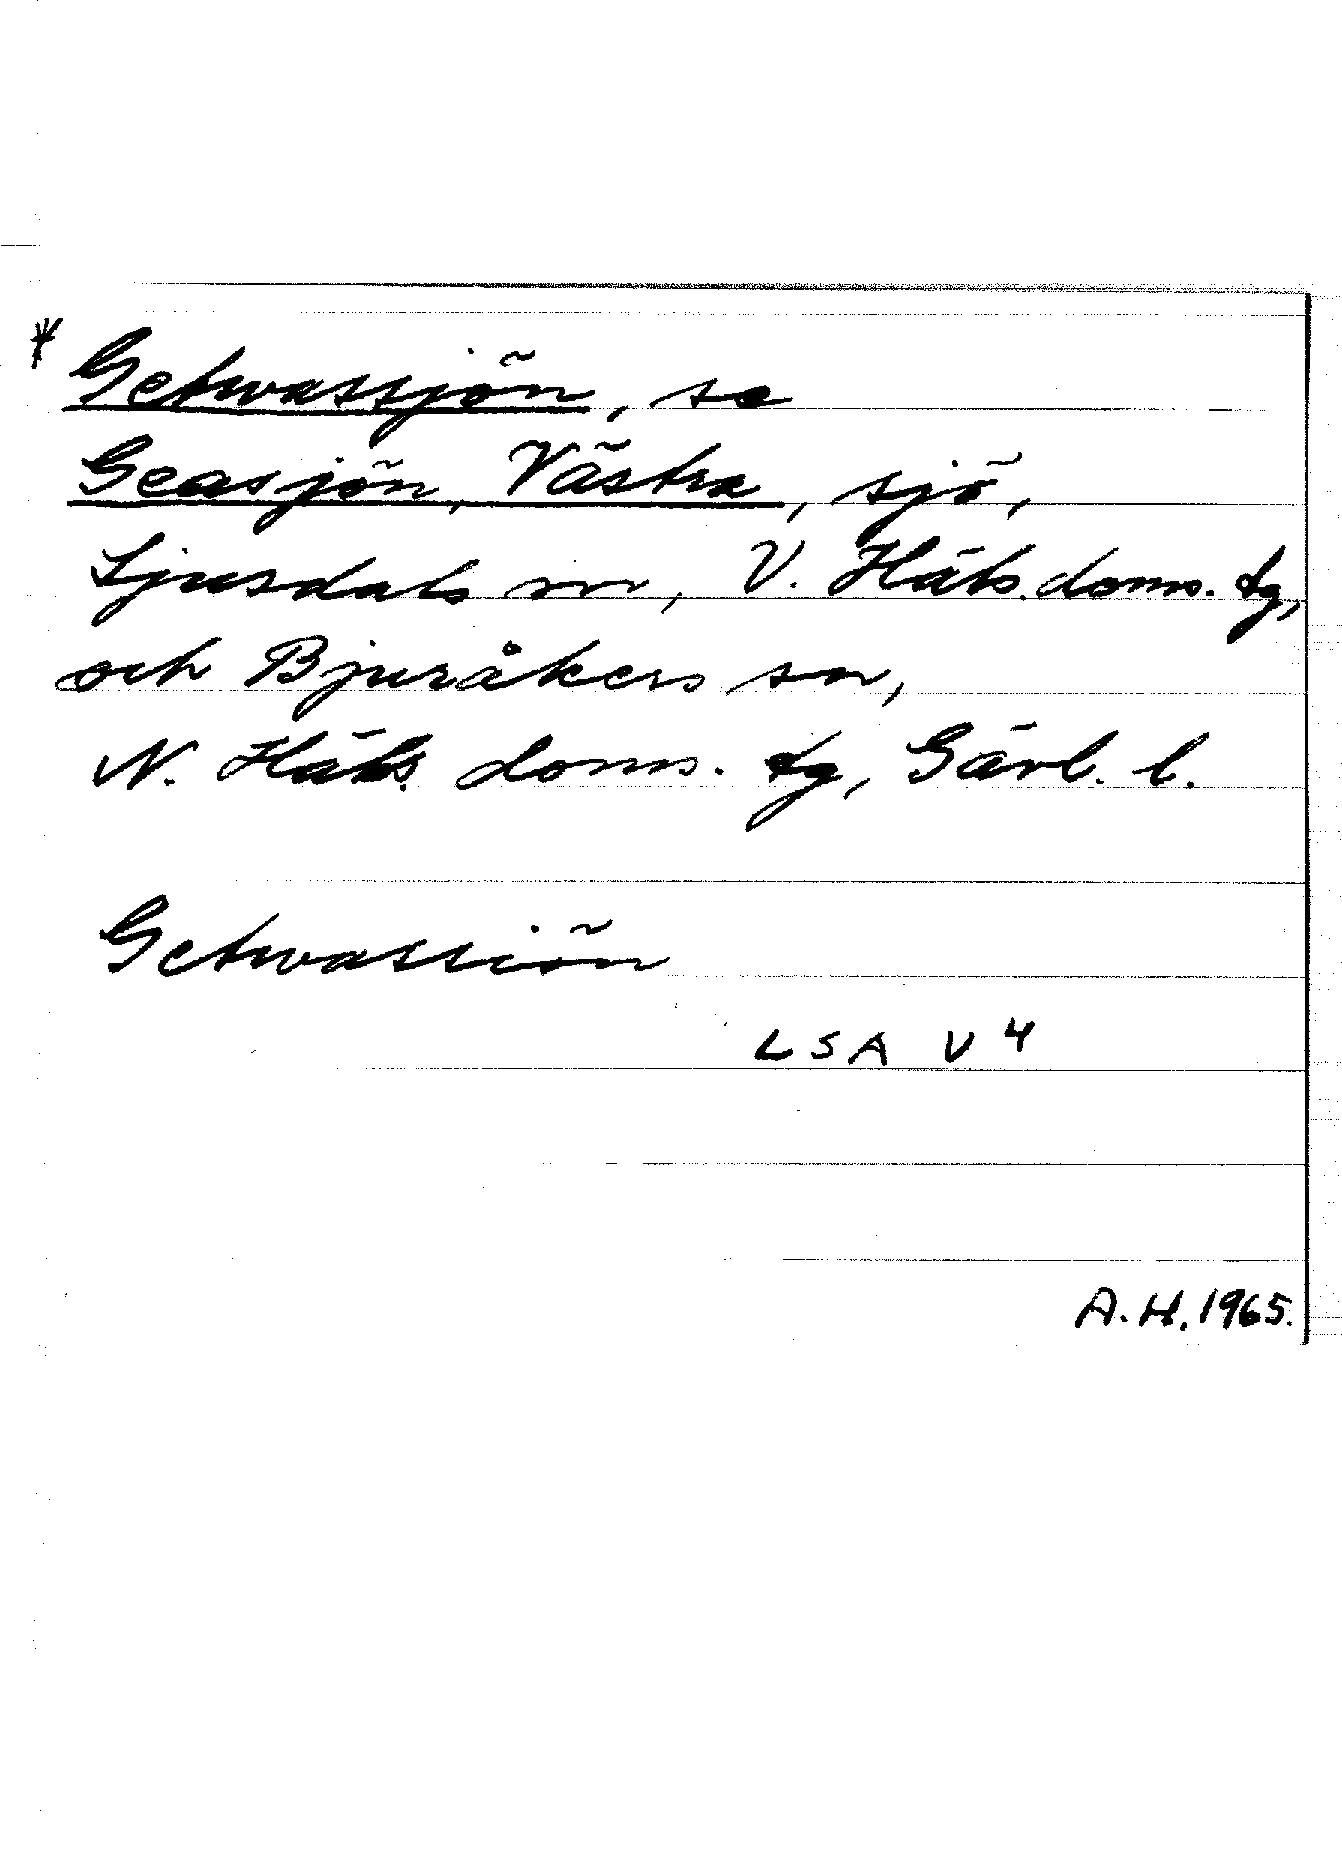 * Getwassjön, se
Geasjön, Västra, sjö,
Ljusdals sn, V. Häls. doms. tg,
och Bjuråkers sn,
N. Häls. doms. tg, Gävl. l.
Getwassiön
LSA V4
A.H. 1965.